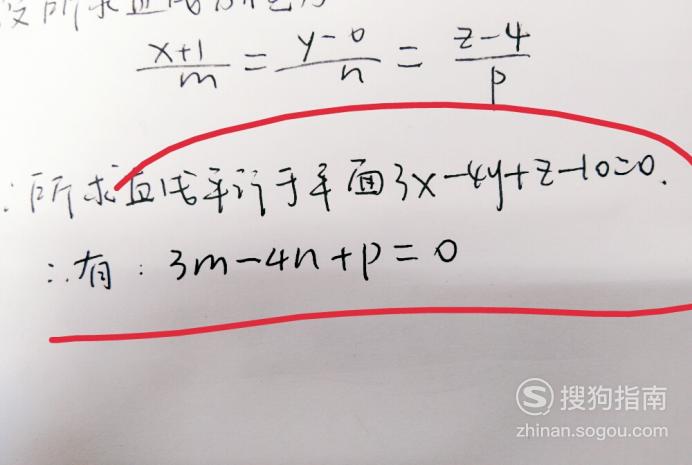 设所求直线方程为
x+1/m = y-0/n = z-4/p
∵所求直线平行于平面3x-4y+z-10=0.
∴有：3m-4n+p=0
搜狗指南
zhinan.sogou.com